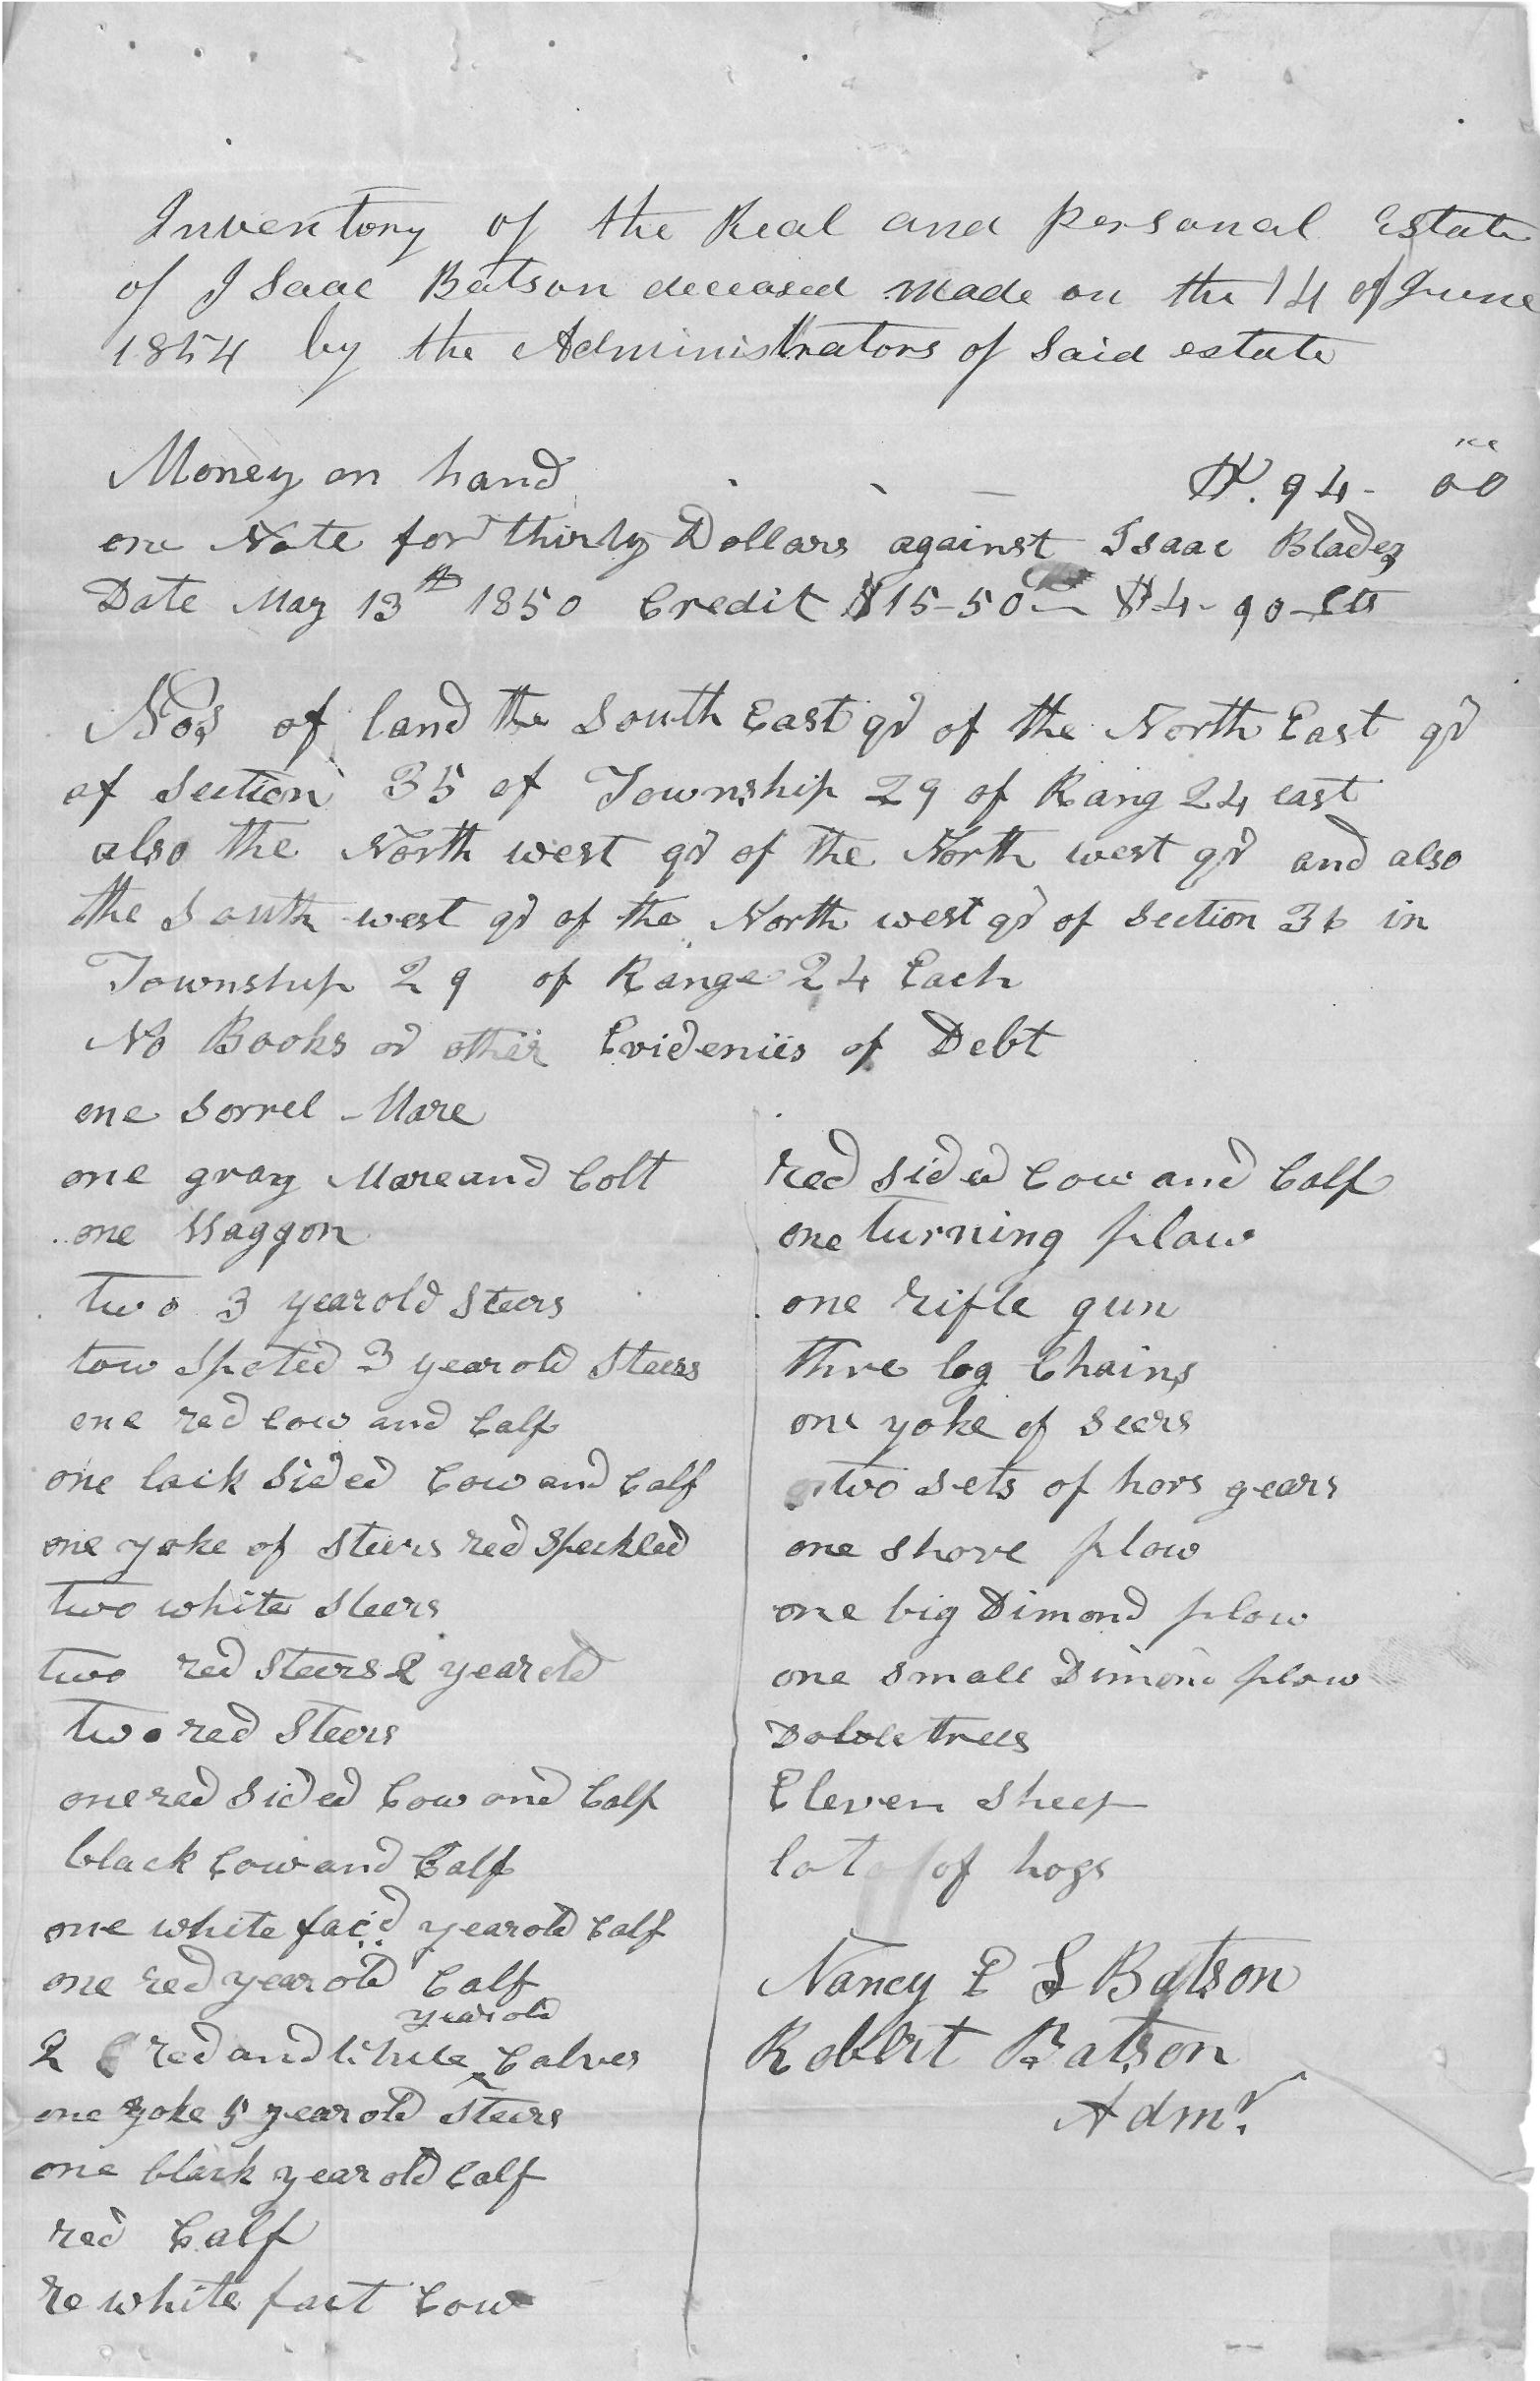 Inventory of the Real and personal Estate
of Isaac Batson deceased made on the 14 of June
1854 by the Administrators of Said estate
Money on hand $. 94 - 00
one Note for thirty Dollars against Isaac Blades
Date May 13th 1850 Credit $15-50 $4-90 cts
Nos of land the South East qr of the North East qr
of Section 35 of Township 29 of Rang 24 east
also the North west qr of the North west qr and also
the South west qr of the North west qr of Section 36 in
Township 29 of Range 24 Each
No Books or other Evidenciis of Debt
one Sorrel Mare
one gray Mare and Colt
one Waggon
two 3 year old Steers
tow Spoted 3 year old Steers
one red Cow and Calf
one lack Sided Cow and Calf
one yoke of Steers red Speckled
two white Steers
two red Steers 2 year old
two red Steers
one red Sided Cow and Calf
black Cow and Calf
one white facd year old Calf
one red year old Calf
year old
2 red and White Calves
one yoke 5 year old Steers
one black year old Calf
red Calf
re white fact Cow
red Sided Cow and Calf
one turning plow
one rifle gun
thre log Chains
one yoke of Seers
two Sets of hors gears
one Shovel plow
one big Dimond plow
one Small Dimond plow
Doble trees
Eleven Sheep
lot of hogs
Nancy E S Batson
Robert Batson
Admr.